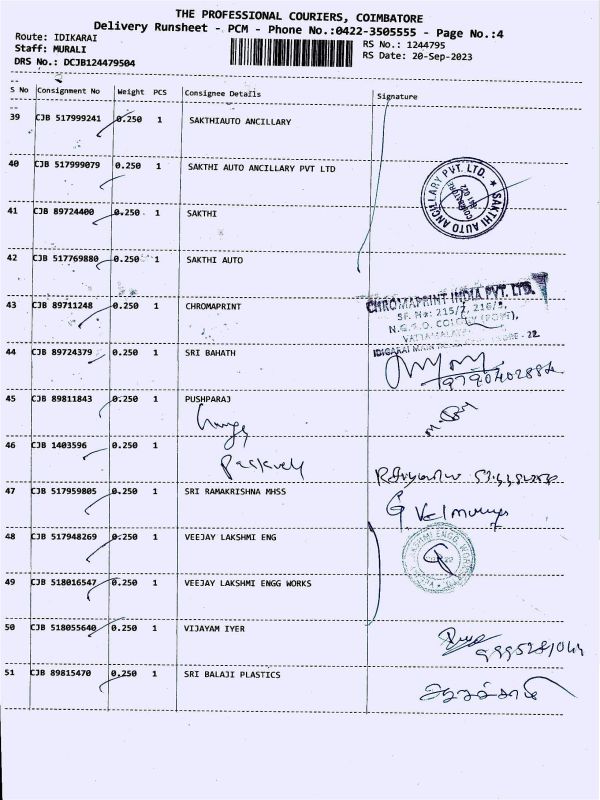 THE PROFESSIONAL COURIERS, COIMBATORE
Delivery Runsheet - PCM - Phone No.:0422-3505555 - Page No.:4
Route: IDIKARAI
Staff: MURALI
DRS No.: DCJB124479504
RS No.: 1244795
RS Date: 20-Sep-2023
S No Consignment No Weight PCS Consignee Details Signature
39 CJB 517999241 0.250 1 SAKTHIAUTO ANCILLARY
40 CJB 517999079 0.250 1 SAKTHI AUTO ANCILLARY PVT LTD
SAKTHI AUTO ANCILLARY PVT. LTD. ★
41 CJB 89724400 0.250 1 SAKTHI
42 CJB 517769880 0.250 1 SAKTHI AUTO
43 CJB 89711248 0.250 1 CHROMAPRINT
CHROMAPRINT INDIA PVT. LTD.
SF. No: 215/2, 216/
44 CJB 89724379 0.250 1 SRI BAHATH
45 CJB 89811843 0.250 1 PUSHPARAJ
46 CJB 1403596 0.250 1
47 CJB 517959805 0.250 1 SRI RAMAKRISHNA MHSS
G Velmurugan
48 CJB 517948269 0.250 1 VEEJAY LAKSHMI ENG
49 CJB 518016547 0.250 1 VEEJAY LAKSHMI ENGG WORKS
50 CJB 518055640 0.250 1 VIJAYAM IYER
51 CJB 89815470 0.250 1 SRI BALAJI PLASTICS